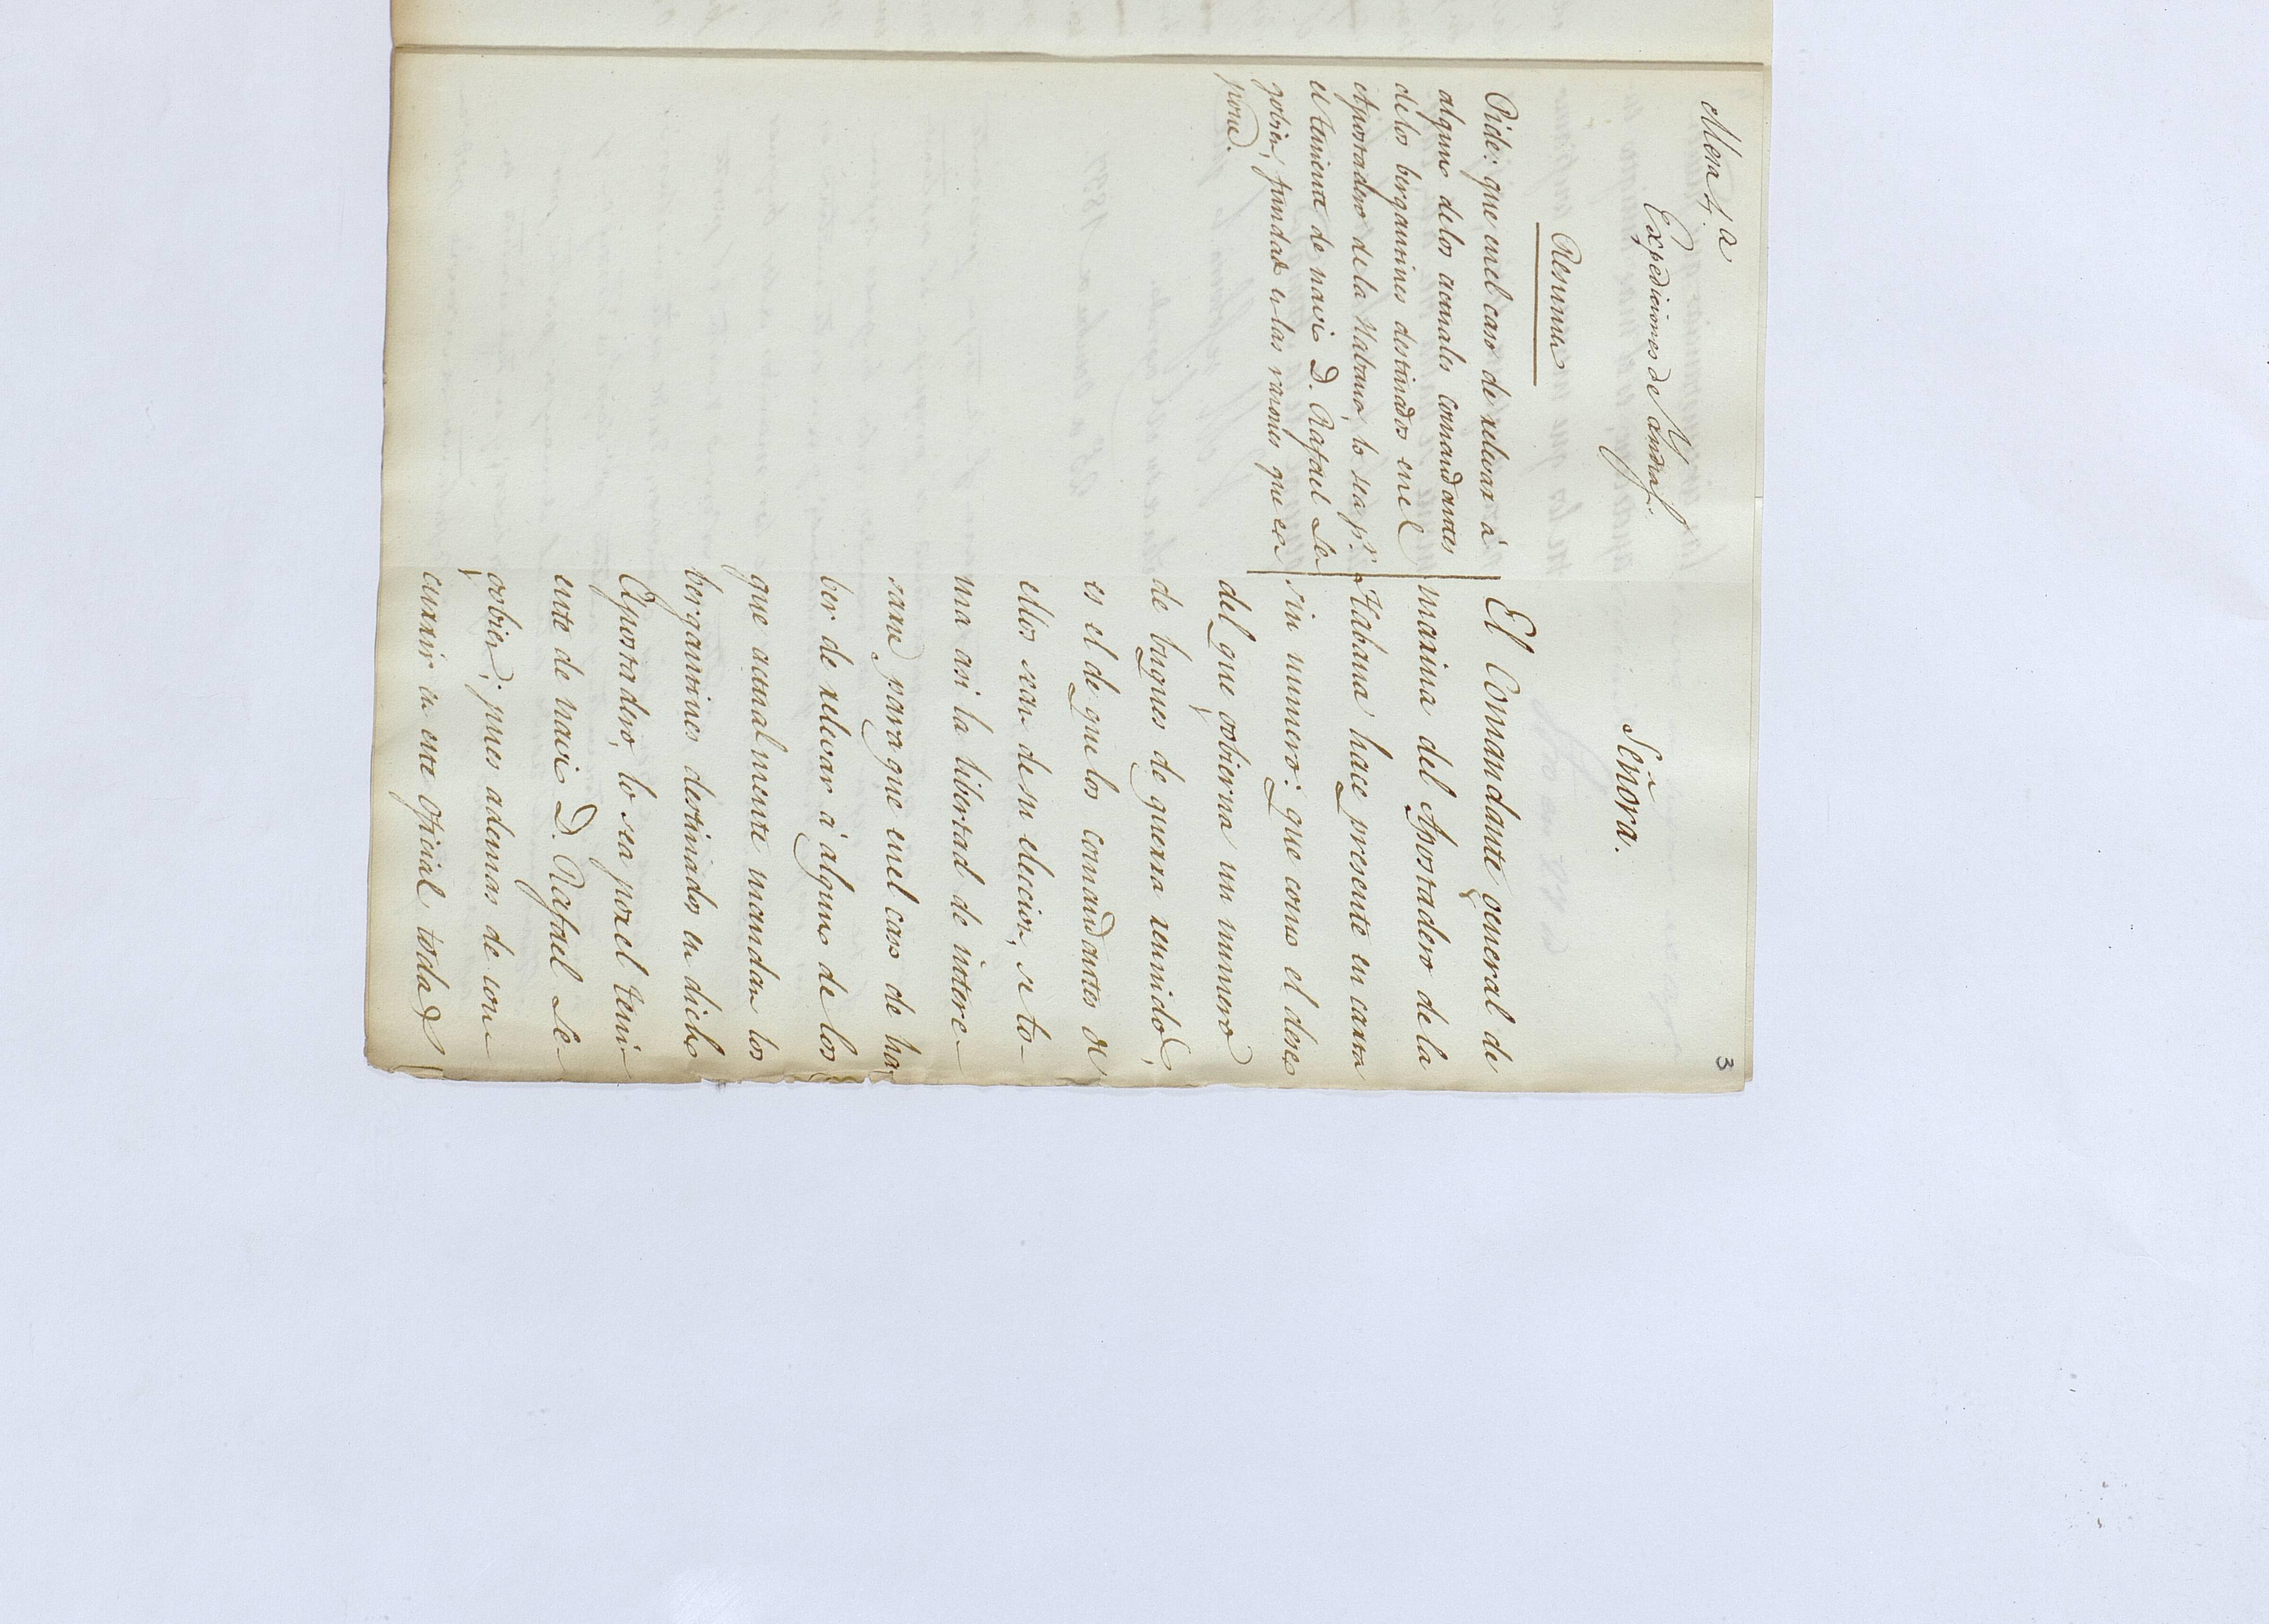 3
Mesa 4.a
Expediciones de Amb.as
Resumen
Pide: que en el caso de relevar à
alguno de los actuales comandantes
de los bergantines destinados en el
Apostadero de la Habana, lo sea p.r
el teniente de navio D. Rafael Le-
gobien, fundado en las razones que ex
pone.
Señora.
El Comandante general de
marina del Apostadero de la
Habana hace presente en carta
sin numero: que como el deseo
del que gobierna un numero
de buques de guerra reunido,
es el de que los comandantes de
ellos sean de su eleccion, se to-
ma asi la libertad de intere-
sarse para que en el caso de ha
ber de relevar à alguno de los
que actualmente mandan los
bergantines destinados en dicho
Apostadero, lo sea por el teni-
ente de navio D. Rafael Le-
gobien; pues ademas de con
currir en este oficial todas